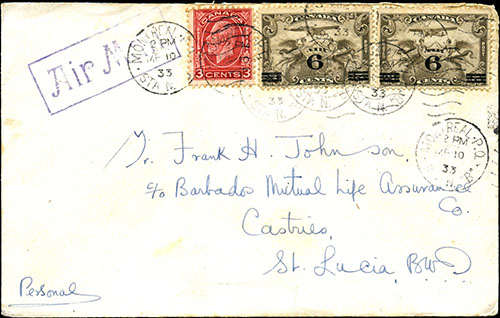 Air
MONTREAL
2 PM
MR 10
33
STA. N.
CANADA
3 CENTS 3
CANADA
6
CANADA
6
33
STA. N.
MONTREAL P.Q.
2 PM
MR 10
33
Mr. Frank H. Johnson.
c/o Barbados Mutual Life Assurance
Co.
Castries
St. Lucia, BWI
Personal